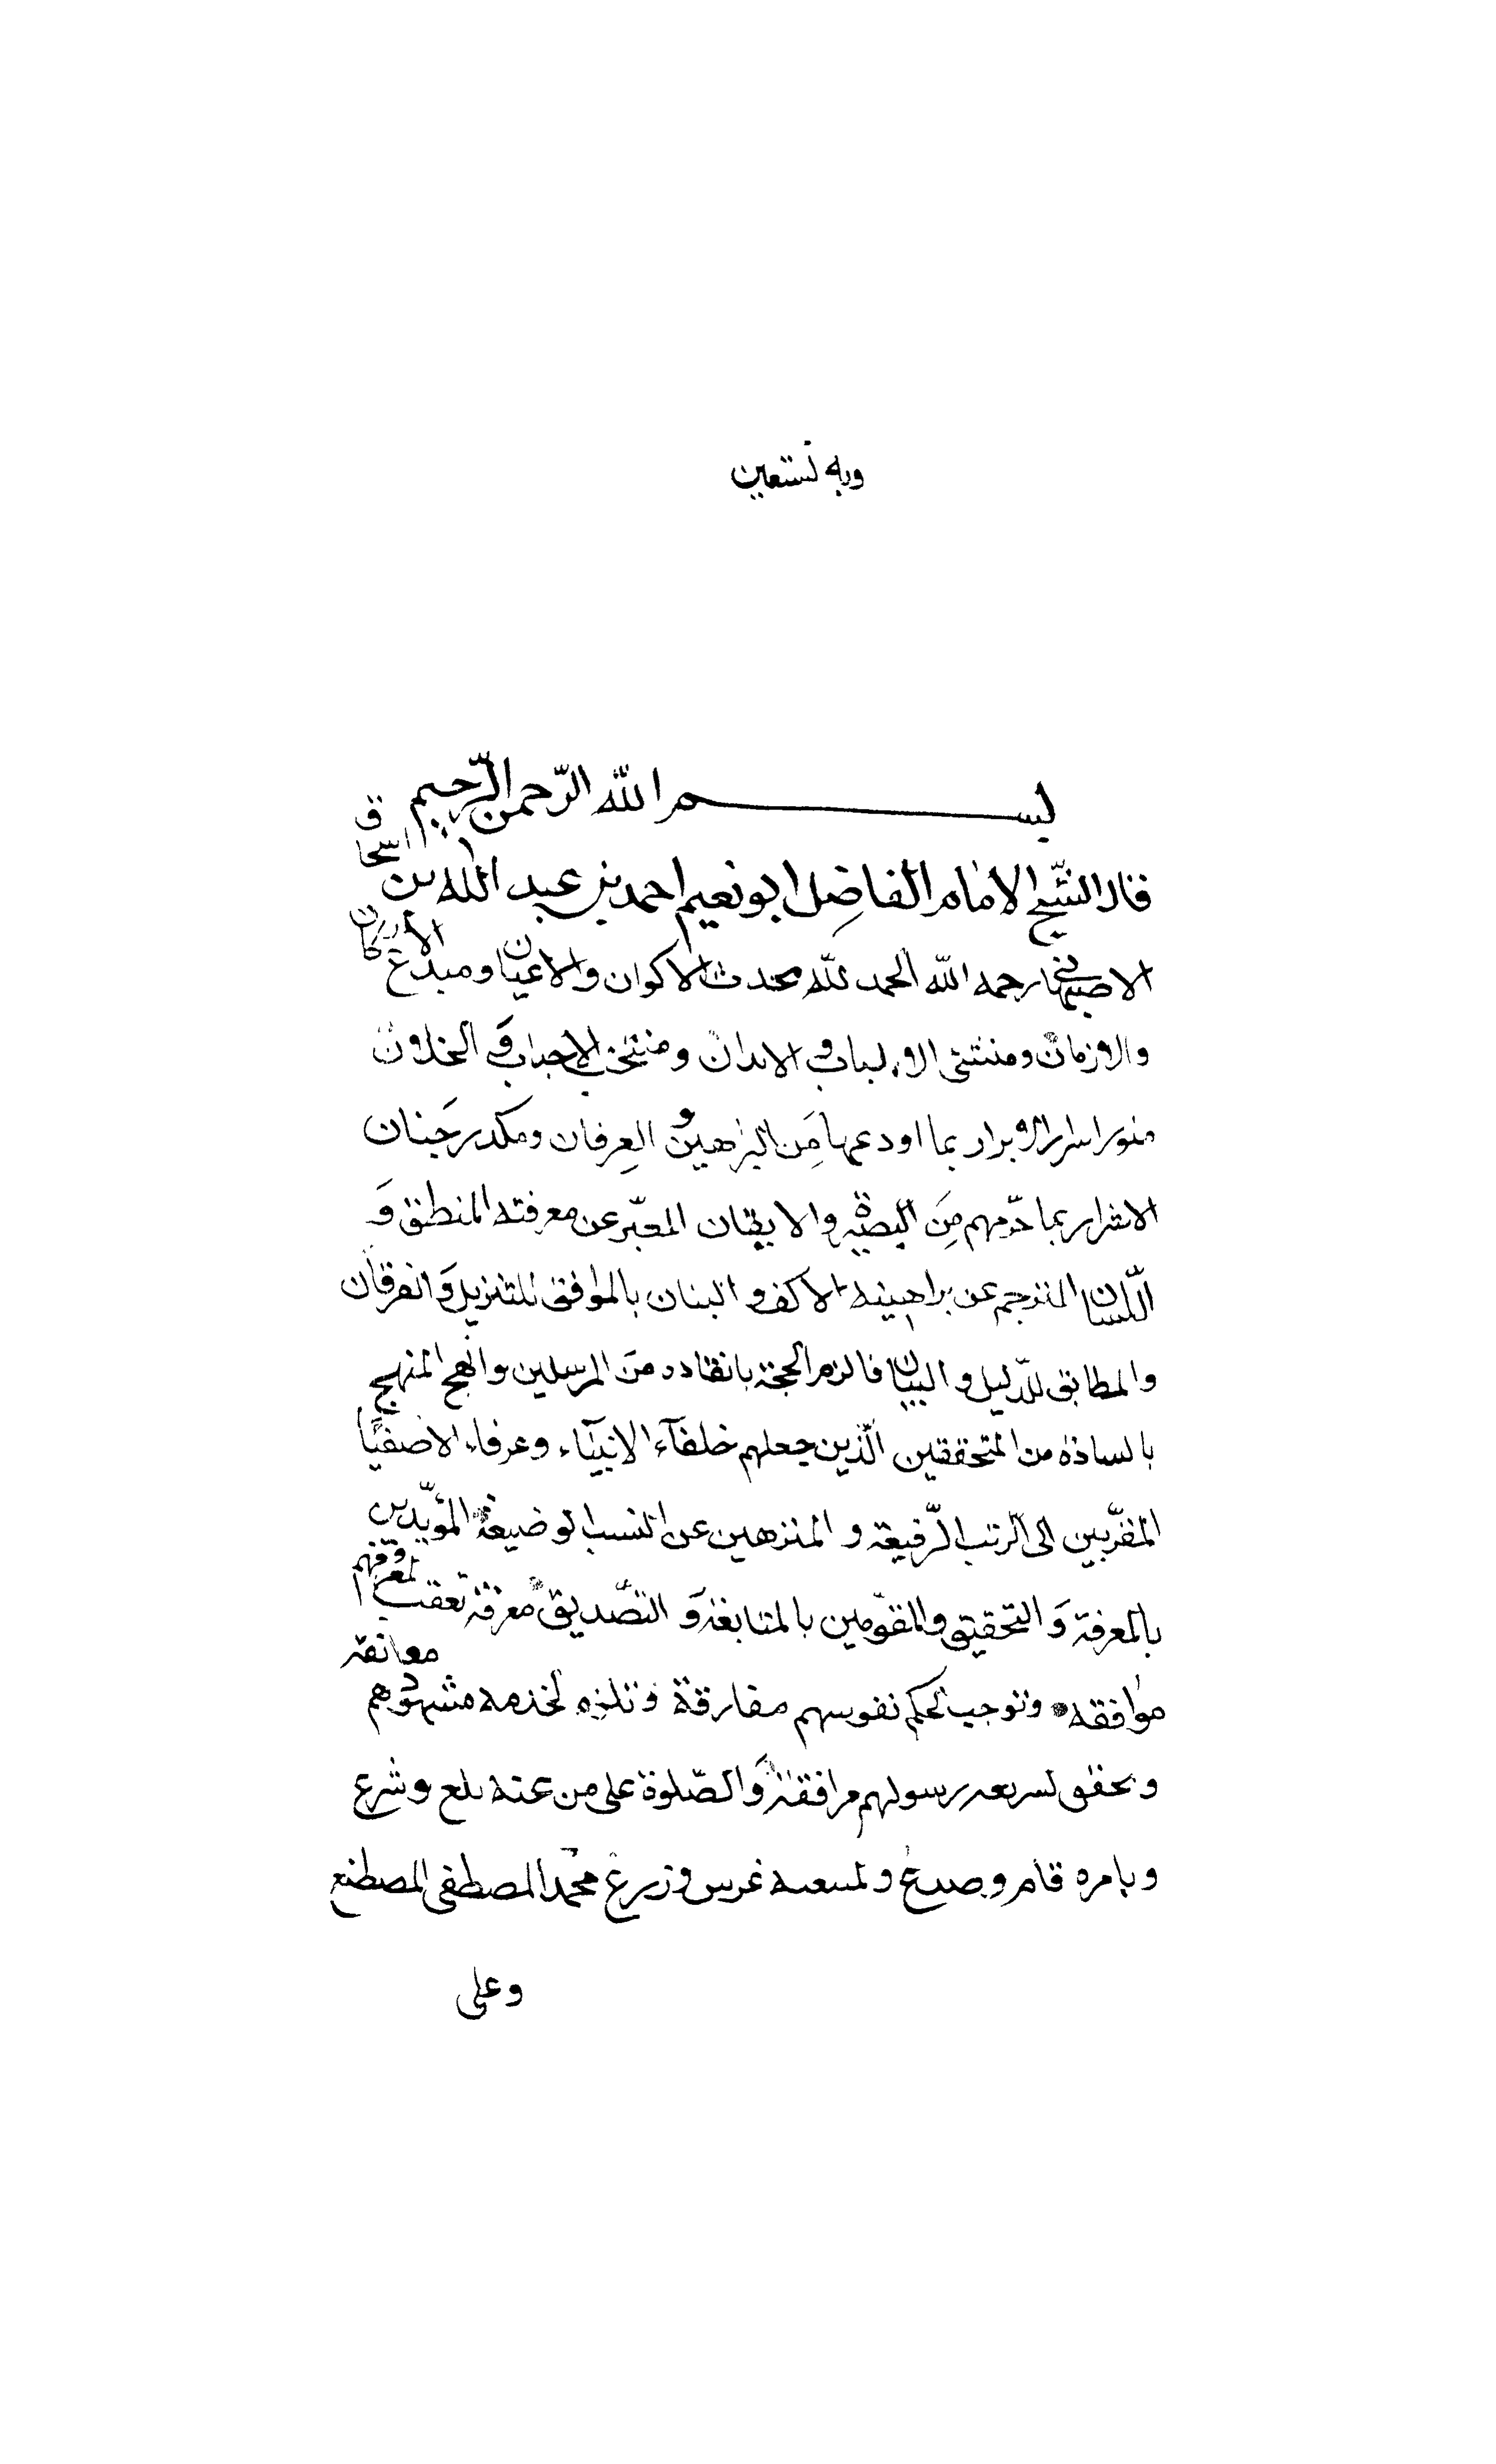 وبه نستعين
بسم الله الرحمن الرحيم
قال الشيخ الامام الفاضل ابو نعيم احمد بن عبد الله بن اسحاق
الاصبهاني رحمه الله الحمد لله محدث الاكوان والاعيان ومبدع الاركان
والازمان ومنشئ الالباب والابدان ومنتخب الاحباب و الخلان
منور اسرار الابرار بما اودعها مِن البراهين و العِرفان ومكدر جَنان
الاشرار بما حرّمهم مِنَ البصيرة والايقان المعبّر عن معرفته المنطق وَ
اللّسان المترجم عن براهينه الاكف و البنان بالموافق للتنزيل وَ الفرقان
والمطابق للدّليل و البيان فالزم الحجة بالقادة منَ المرسلين وانهج المنهج
بالسادة من المتحققين الّذين جعلهم خلفآء الانبيآء وعرفاء الاصفيا
المقرّبين الى الرتب الرّفيعة و المنزهين عن النسب الوضيعة المؤيّدين
بالمعرفة وَ التحقيق والمقوّمين بالمتابعة وَ التصّديق معرفة تعقب لمعروفهم
موافقه معانقة
وتوجب لحكم نفوسهم مفارقة وتلزم لخدمة مشهودهم
وتحقق لسريعه رسولهم مرافقة وَ الصّلوة على من عنه بلغ و شرع
وبامره قام وصدع و لمتبعيه غرس وزرع محمّد المصطفى المصطنع
وعلى